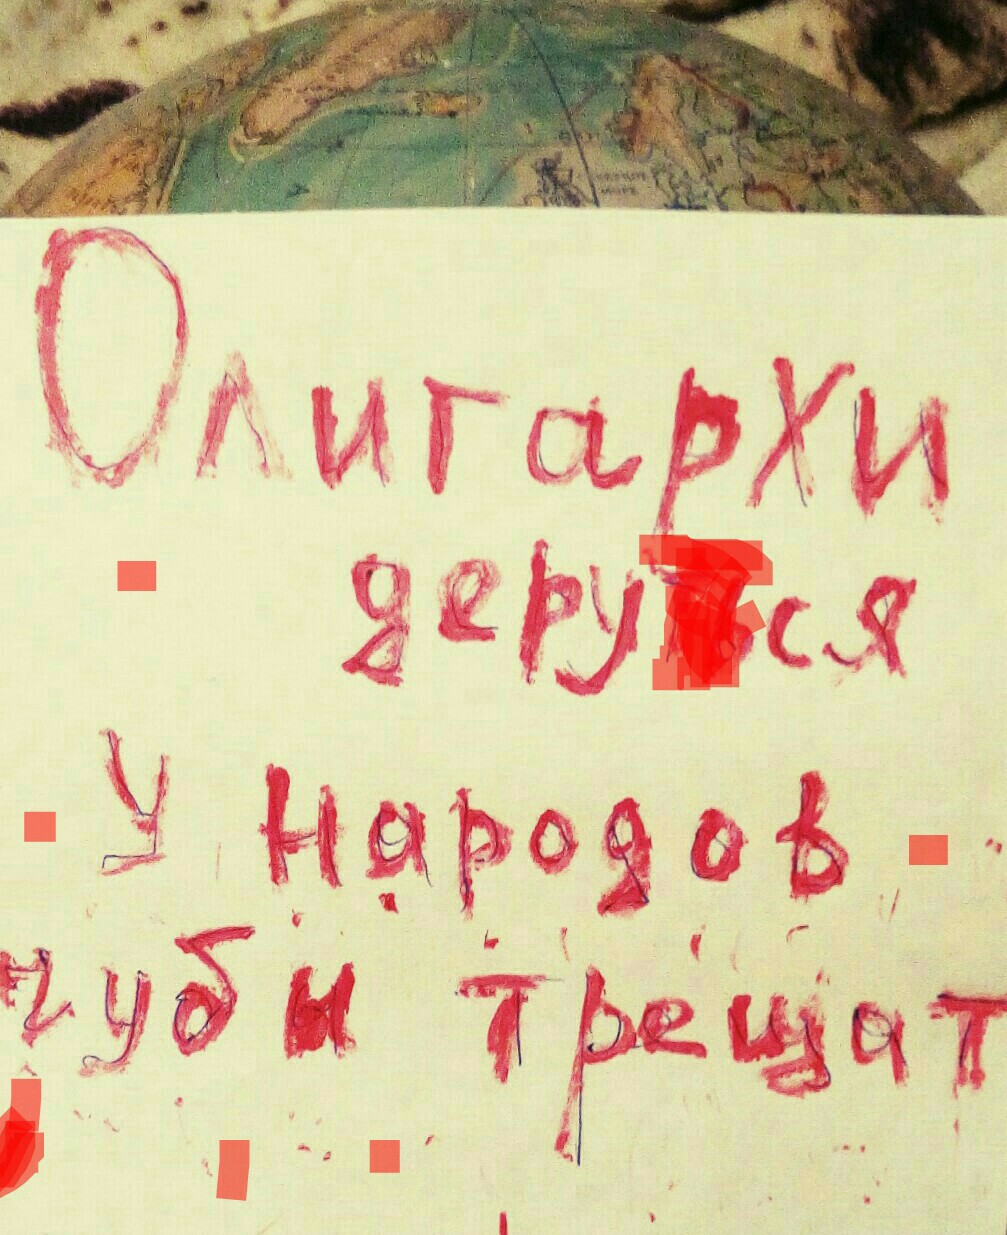 Олигархи
дерутся
У народов
чубы трещат